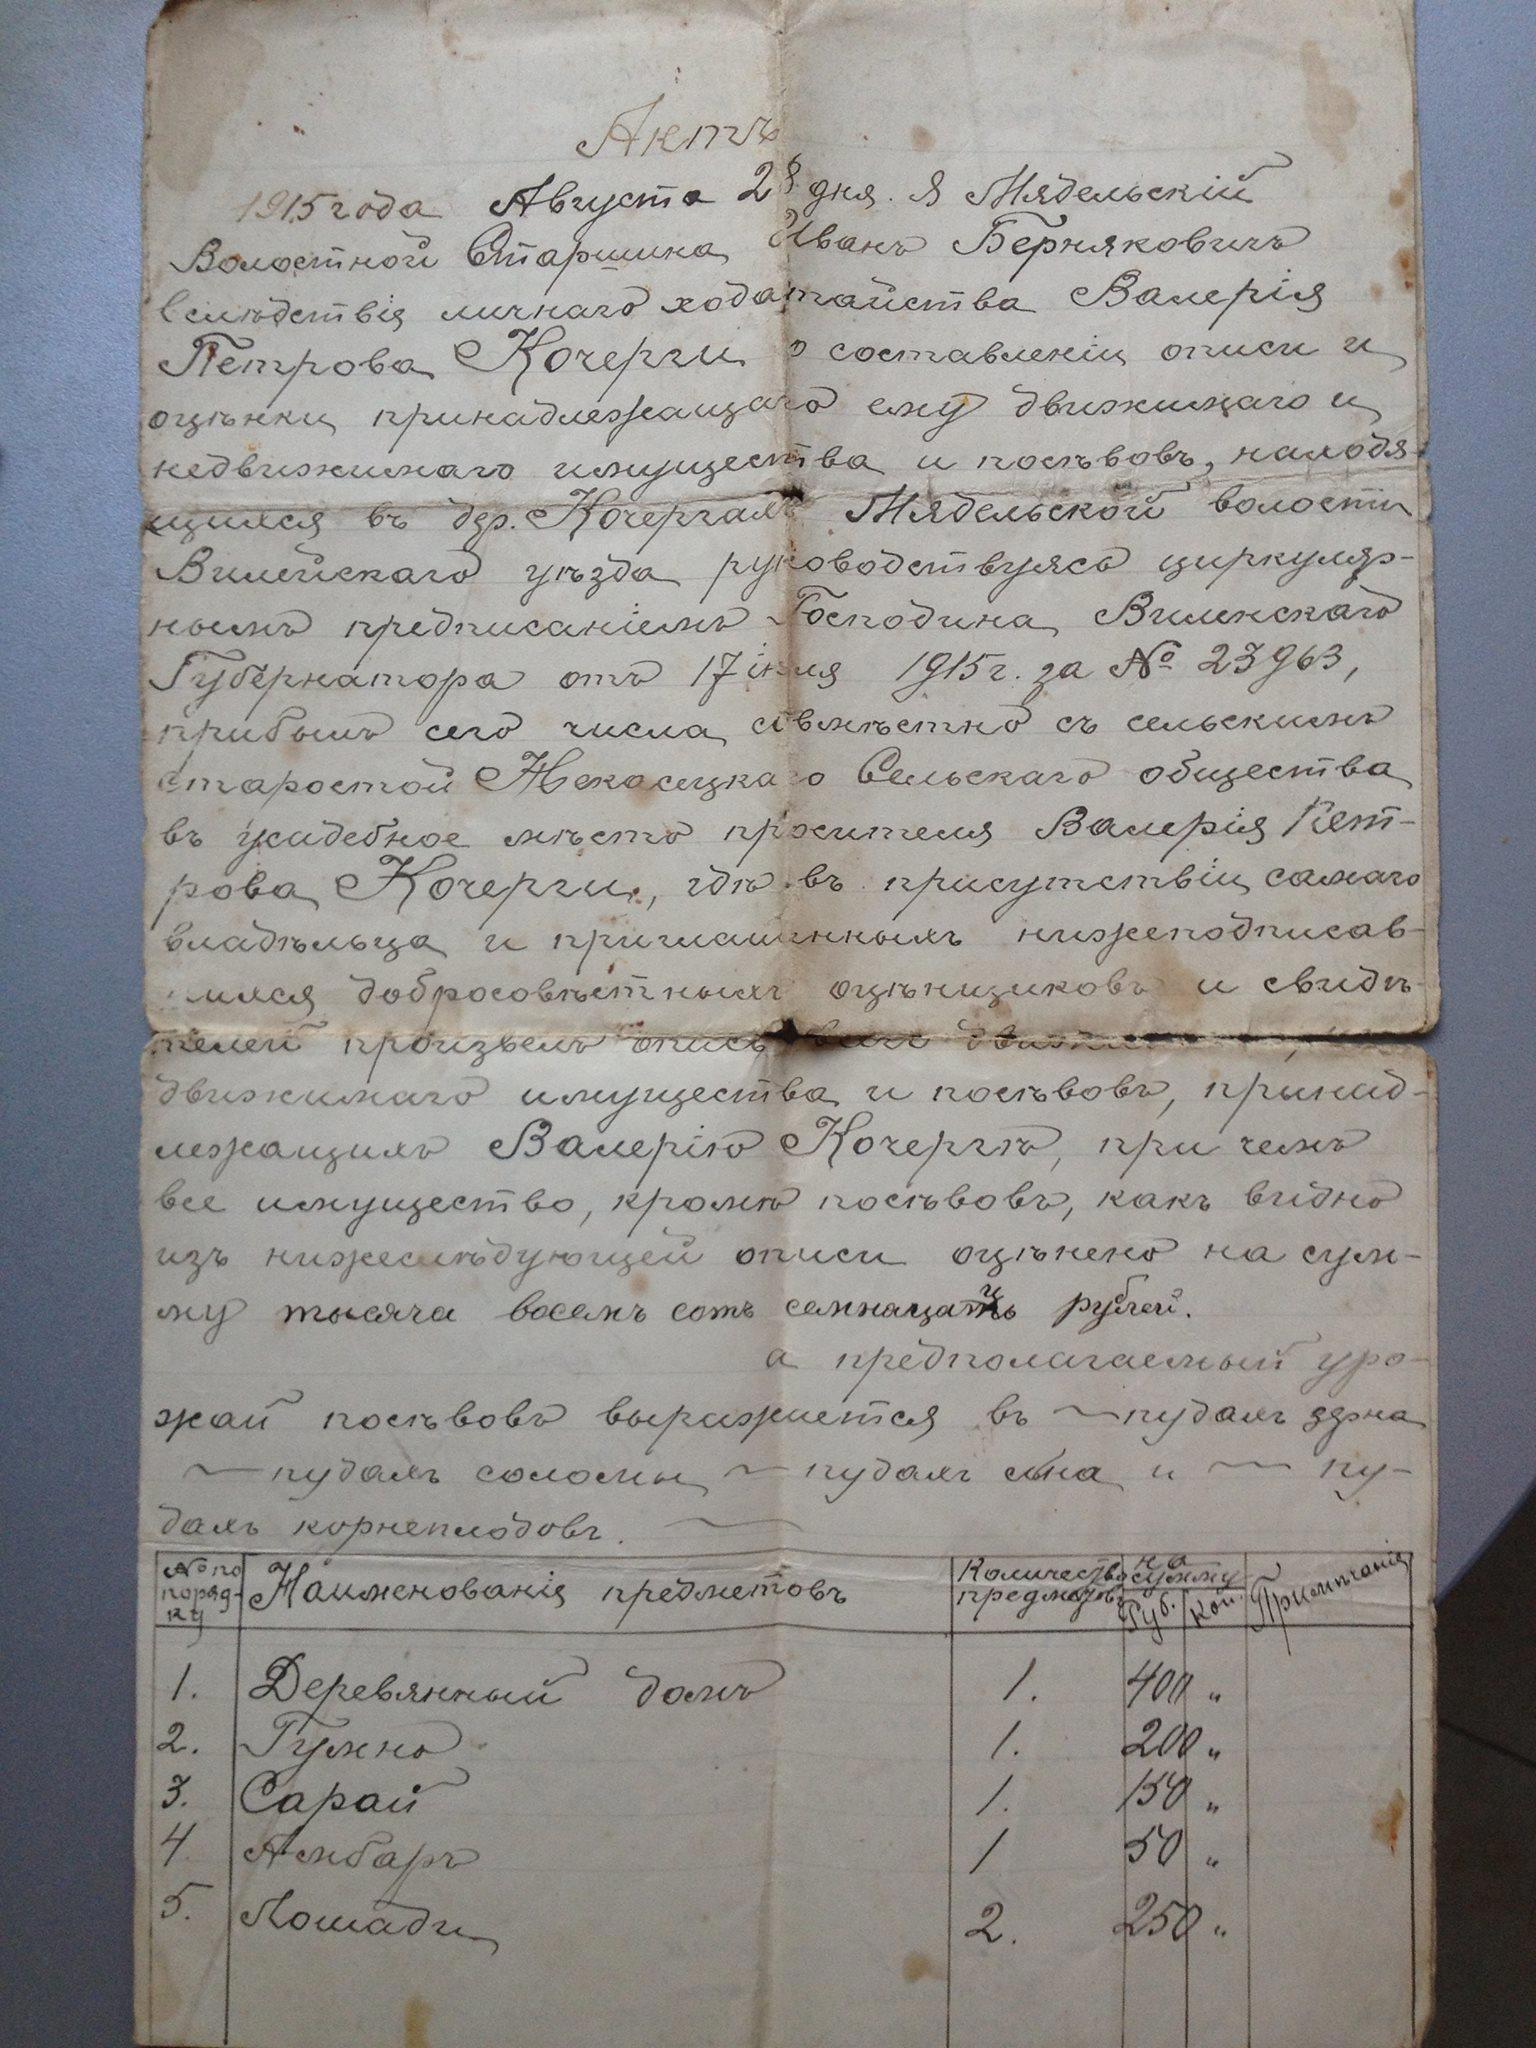 Актъ
1915 года Августа 28 дня. Я Мядельскій
Волостной Старшина Иванъ Берняковичъ
вслѣдствія личнаго ходатайства Валерія
Петрова Кочерги о составленіи описи и
оцѣнки принадлежащаго ему движимаго и
недвижимаго имущества и посѣвовъ, находя-
щихся въ дер. Кочергахъ Мядельской волости
Вилейскаго уѣзда руководствуясь циркуляр-
нымъ предписаніемъ Господина Виленскаго
Губернатора отъ 17 1915 г. за № 23963,
прибылъ сего числа совмѣстно съ сельскимъ
старостой Сельскаго общества
въ усадебное мѣсто просителя Валерія Пет-
рова Кочерги, гдѣ въ присутствіи самаго
владѣльца и приглашенныхъ нижеподписав-
шихся добросовѣстныхъ оцѣнщиковъ и свидѣ-
телей произвелъ опись
движимаго имущества и посѣвовъ, принад-
лежащихъ Валерію Кочергѣ, при чемъ
все имущество, кромѣ посѣвовъ, какъ видно
изъ нижеслѣдующей описи оцѣнено на сум-
му тысяча восемь сотъ рублей.
а предполагаемый уро-
жай посѣвовъ выражается въ ~ пудахъ зерна
~ пудахъ соломы ~ пудахъ сѣна и ~ пу-
дахъ корнеплодовъ. ~
№ по поряд-ку Наименованія предметовъ Количество предметовъ на сумму Руб. Коп. Примѣчанія
1. Деревянный домъ 1. 400 "
2. Гумно 1. 200 "
3. Сарай 1. 150 "
4 Амбаръ 1 50 "
5. Лошади 2. 250 "